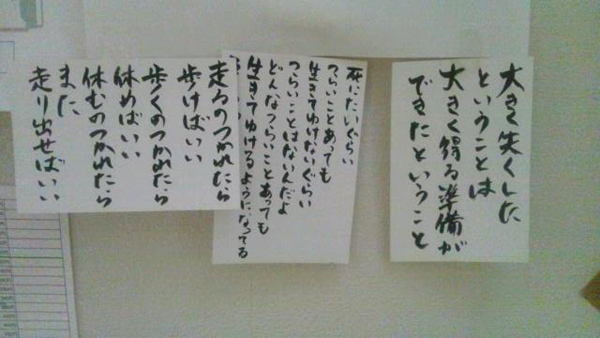 大きく失くした
ということは
大きく得る準備が
できたということ
死にたいぐらい
つらいことあっても
生きてゆけないぐらい
つらいことはないんだよ
どんなつらいことあっても
生きてゆけるようになってる
走るのつかれたら
歩けばいい
歩くのつかれたら
休めばいい
休むのつかれたら
また
走り出せばいい